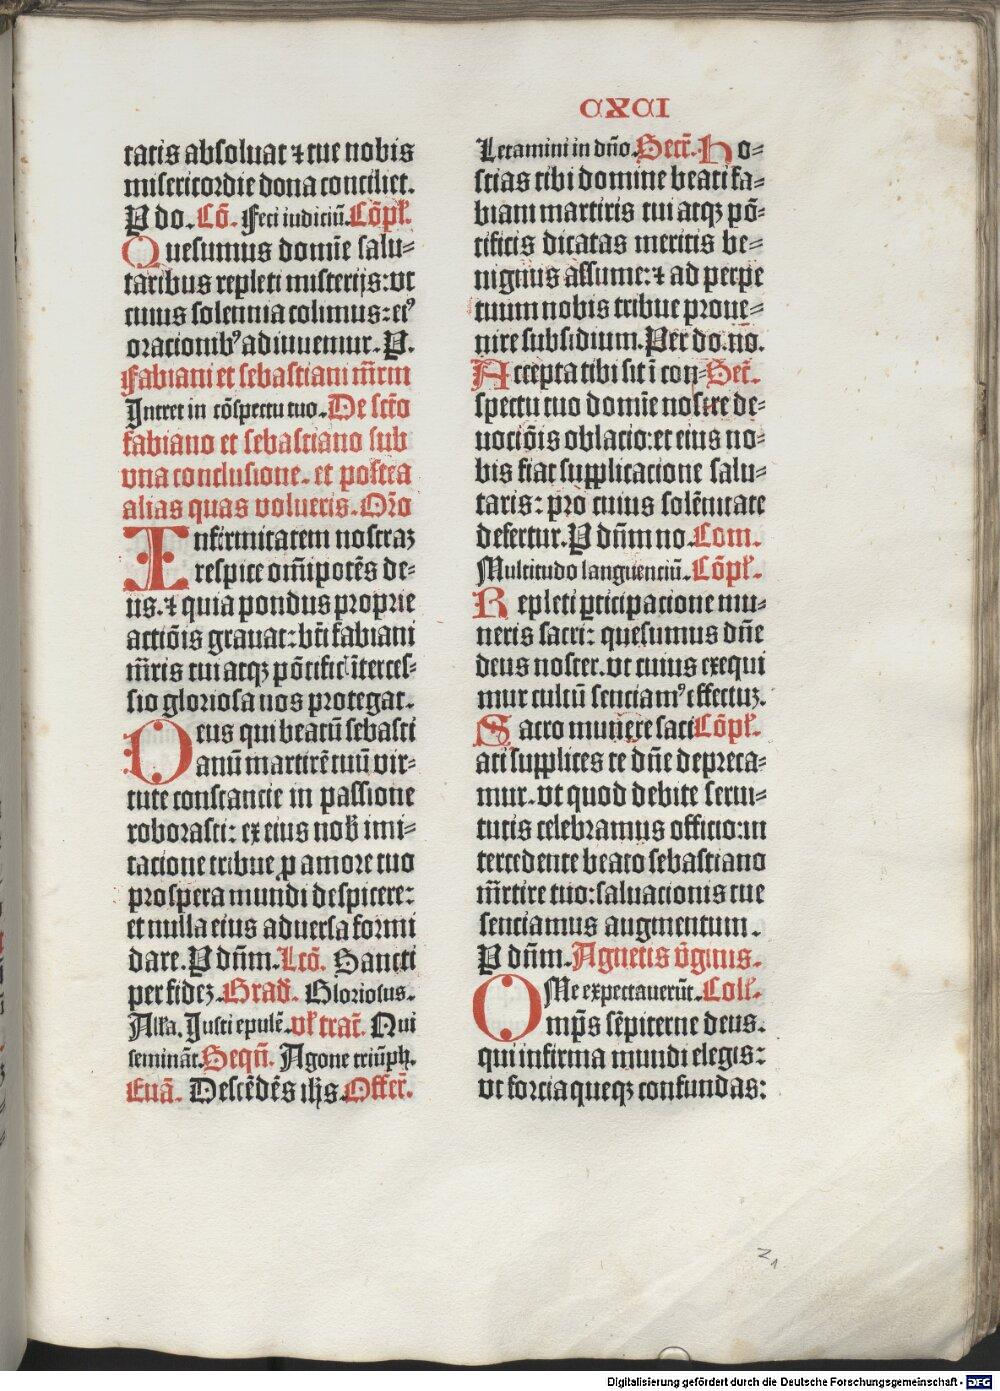 CXCI
tatis absoluat ⁊ tue nobis
misericordie dona conciliet.
P do. Cō. Feci iudiciū. Cōpł.
Quesumus domīe salu⸗
taribus repleti misterijs: vt
cuius solennia colimus: eiꝰ
oracionibꝰ adiuuemur. P.
Fabiani et sebastiani m̄rm
Intret in cōspectu tuo. De scto
fabiano et sebastiano sub
vna conclusione. et postea
alias quas volueris. Oro
Infirmitatem nostraz
respice om̄ipotēs de⸗
us. ⁊ quia pondus proprie
actiōis grauat: bti fabiani
m̄ris tui atqꝫ pōtific̄ īterces⸗
sio gloriosa nos protegat.
Deus qui beatū sebasti
anū martirē tuū vir⸗
tute constancie in passione
roborasti: ex eius nob̄ imi⸗
tacione tribue ꝓ amore tuo
prospera mundi despicere:
et nulla eius aduersa formi
dare. P dn̄m. Lcō. Sancti
per fidez. Grad̄. Gloriosus.
Alła. Iusti epulē. vł tract̄. Qui
semināt. Seqū. Agone triūph.
Euā. Descēdēs ihs. Offert̄.
Letamini in dn̄o. Secr̄. Ho⸗
stias tibi domine beati fa⸗
biani martiris tui atqꝫ pō⸗
tificis dicatas meritis be⸗
nignus assume: ⁊ ad perpe
tuum nobis tribue proue⸗
nire subsidium. Per do. no.
Accepta tibi sit ī con⸗ Secr̄.
spectu tuo domīe nostre de⸗
uociōis oblacio: et eius no⸗
bis fiat supplicacione salu⸗
taris: pro cuius solēnitate
defertur. P dn̄m no. Com.
Multitudo languenciū. Cōpł.
Repleti ꝑticipacione mu⸗
neris sacri: quesumus dn̄e
deus noster. vt cuius exequi
mur cultū senciamꝰ effectuz.
Sacro munere saci Cōpł.
ati supplices te dn̄e depreca⸗
mur. vt quod debite serui⸗
tutis celebramus officio: in
tercedente beato sebastiano
m̄rtire tuo: saluacionis tue
senciamus augmentum.
P dn̄m. Agnetis v̄ginis.
Me expectauerūt. Coll̄.
Omp̄s sēpiterne deus.
qui infirma mundi elegis:
vt forcia queqꝫ confundas:
z 1
Digitalisierung gefördert durch die Deutsche Forschungsgemeinschaft - DFG